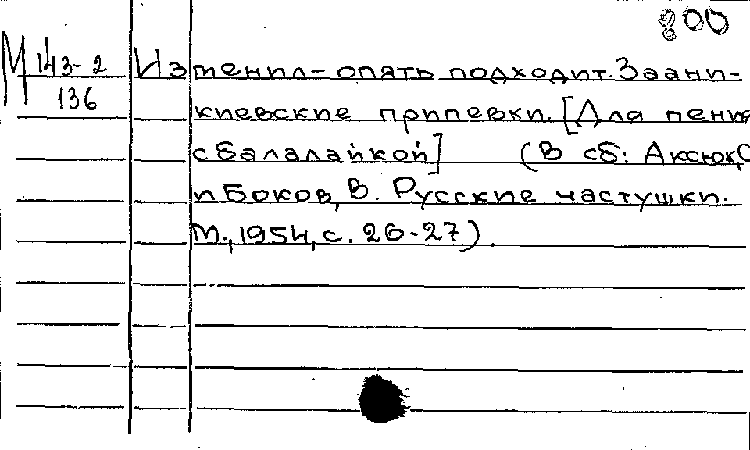 800
М 143-2 Изменил - опять подходит. Заани-
136 киевские припевки. [Для пения
с балалайкой] (В сб: Аксюк, С
и Боков, В. Русские частушки.
М., 1954, с. 26-27).